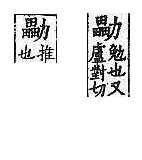 㔣
勉也又
盧對切
㔣
推
也